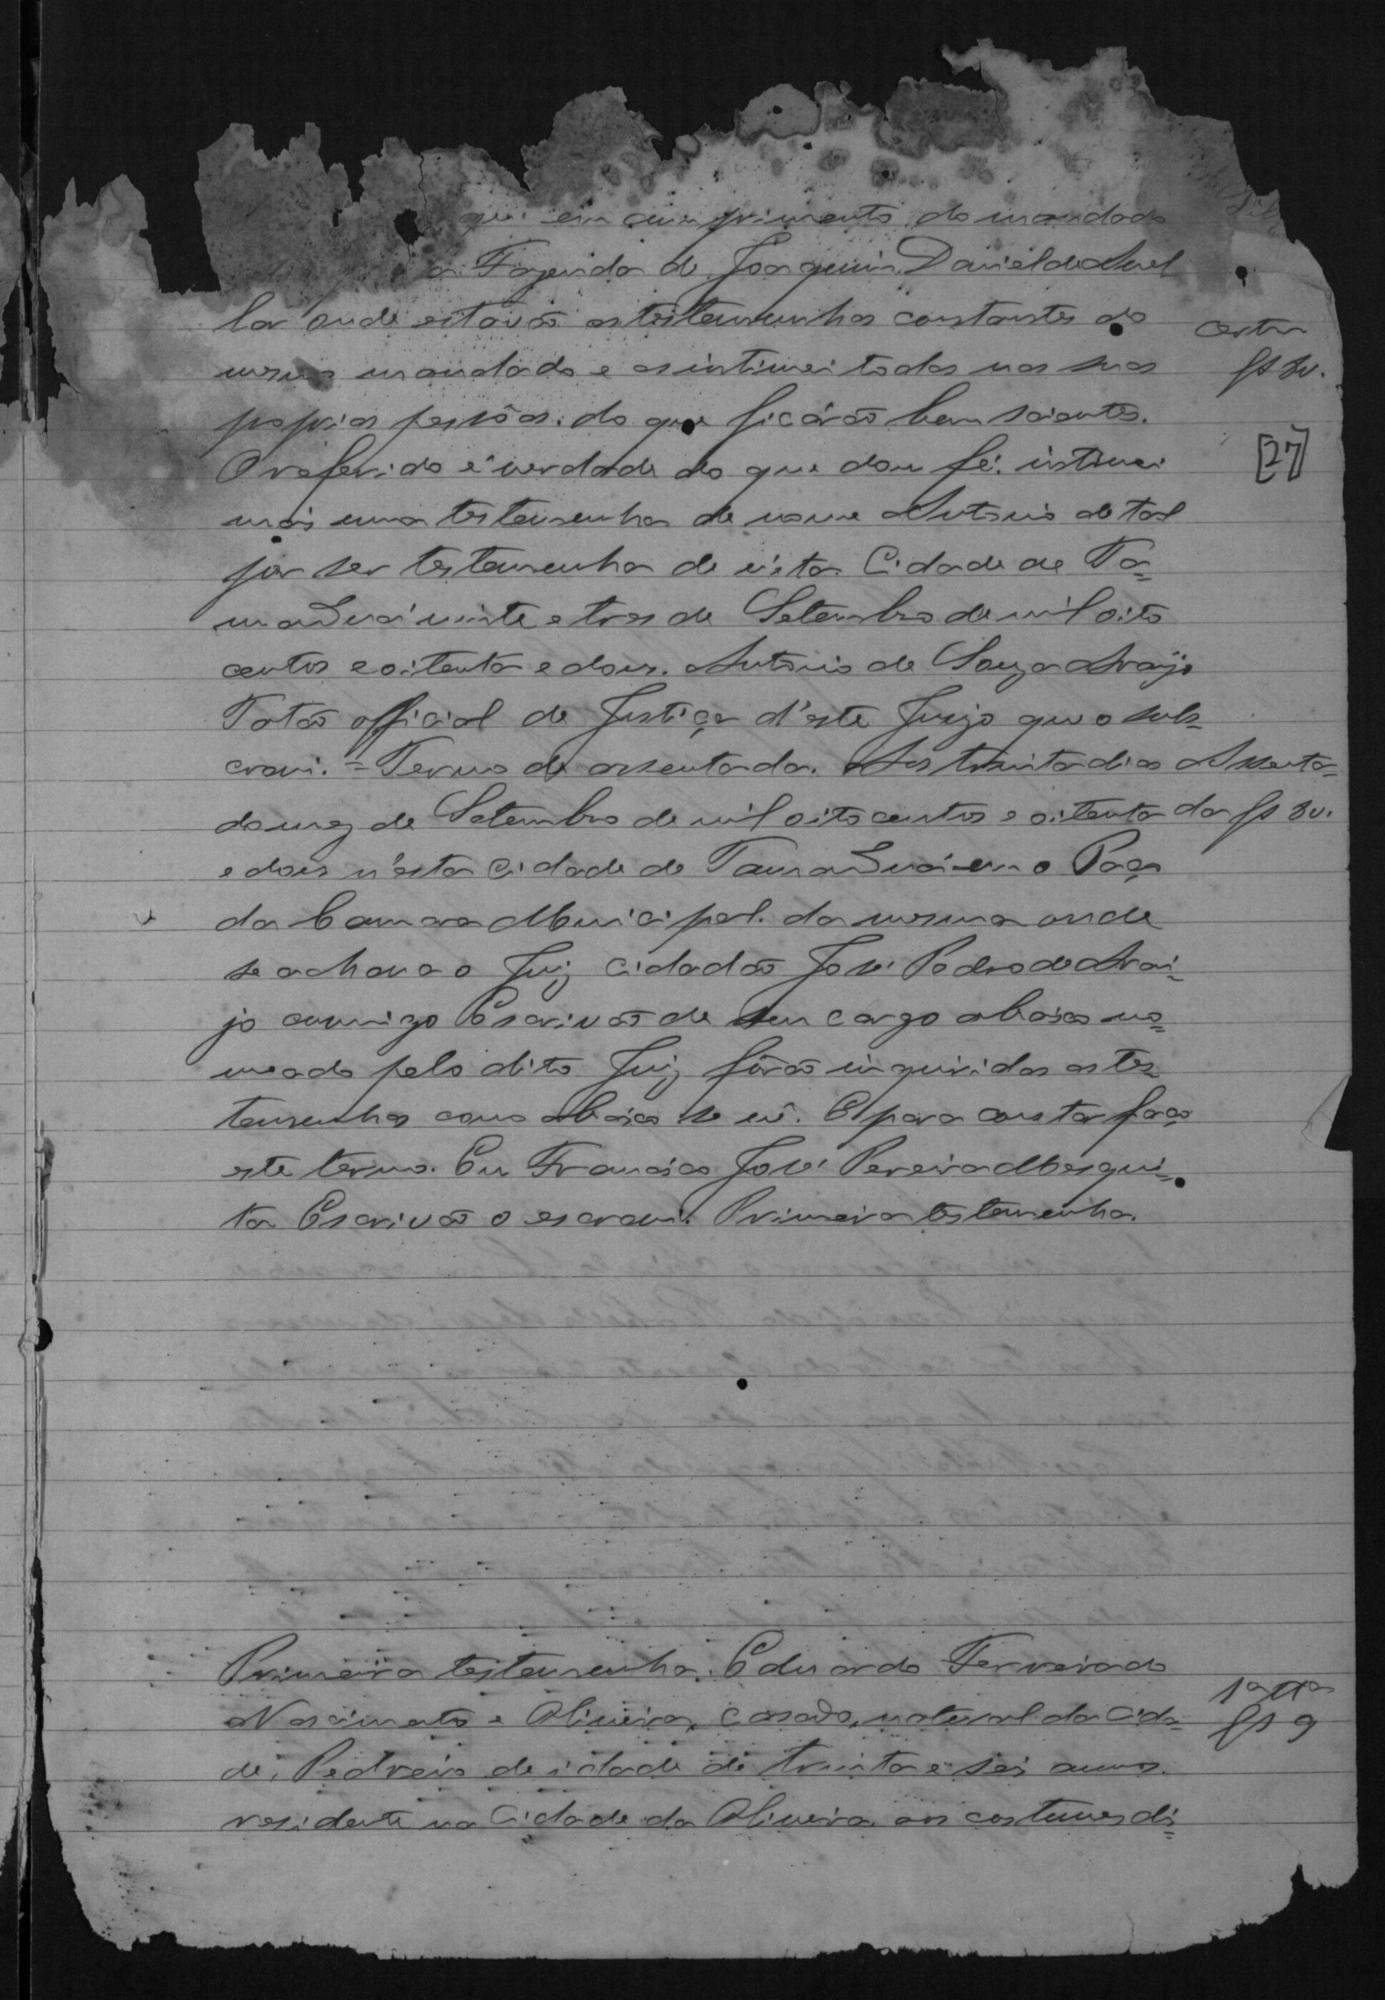 que em cumprimento do mandado
a Fazenda de Joaquim Daniel de Avel
lar onde estavão as testemunhas constantes do
mesmo mandado e as intimei todas nas suas
proprias pessôas. do que ficárão bem scientes.
O referido é verdade do que dou fé. intimei
mais uma testemunha de nome Antonio de tal
por ser testemunha de vista. Cidade de Ta=
manduá vinte e tres de Setembro de mil oito
centos e oitenta e dous. Antonio de Souza Araújo
Tatão official de Justiça d'este Juizo que o subs=
crevi. = Termo de assentada. Aos trinta dias
do mez de Setembro de mil oitocentos e oitenta
e dous n'esta cidade de Tamanduá em o Paço
da Camara Municipal. da mesma onde
se achava o Juiz cidadão José Pedro de Arau=
jo comigo Escrivão de seu cargo abaixo no=
meado pelo dito Juiz fôrão inquiridas as tes=
temunhas como abaixo se vê. E para constar faço
este termo. Eu Francisco José Pereira Mesqui=
ta Escrivão o escrevi. Primeira testemunha.
Primeira testemunha. Eduardo Ferreira do
Nascimento e Oliveira, casado, natural da Cida=
de, Pedreiro de idade de trinta e seis annos.
residente na Cidade da Oliveira aos costumes di=
fs 3v.
[27]
Assenta=
da fs 3v.
1ª ttª
fs 9